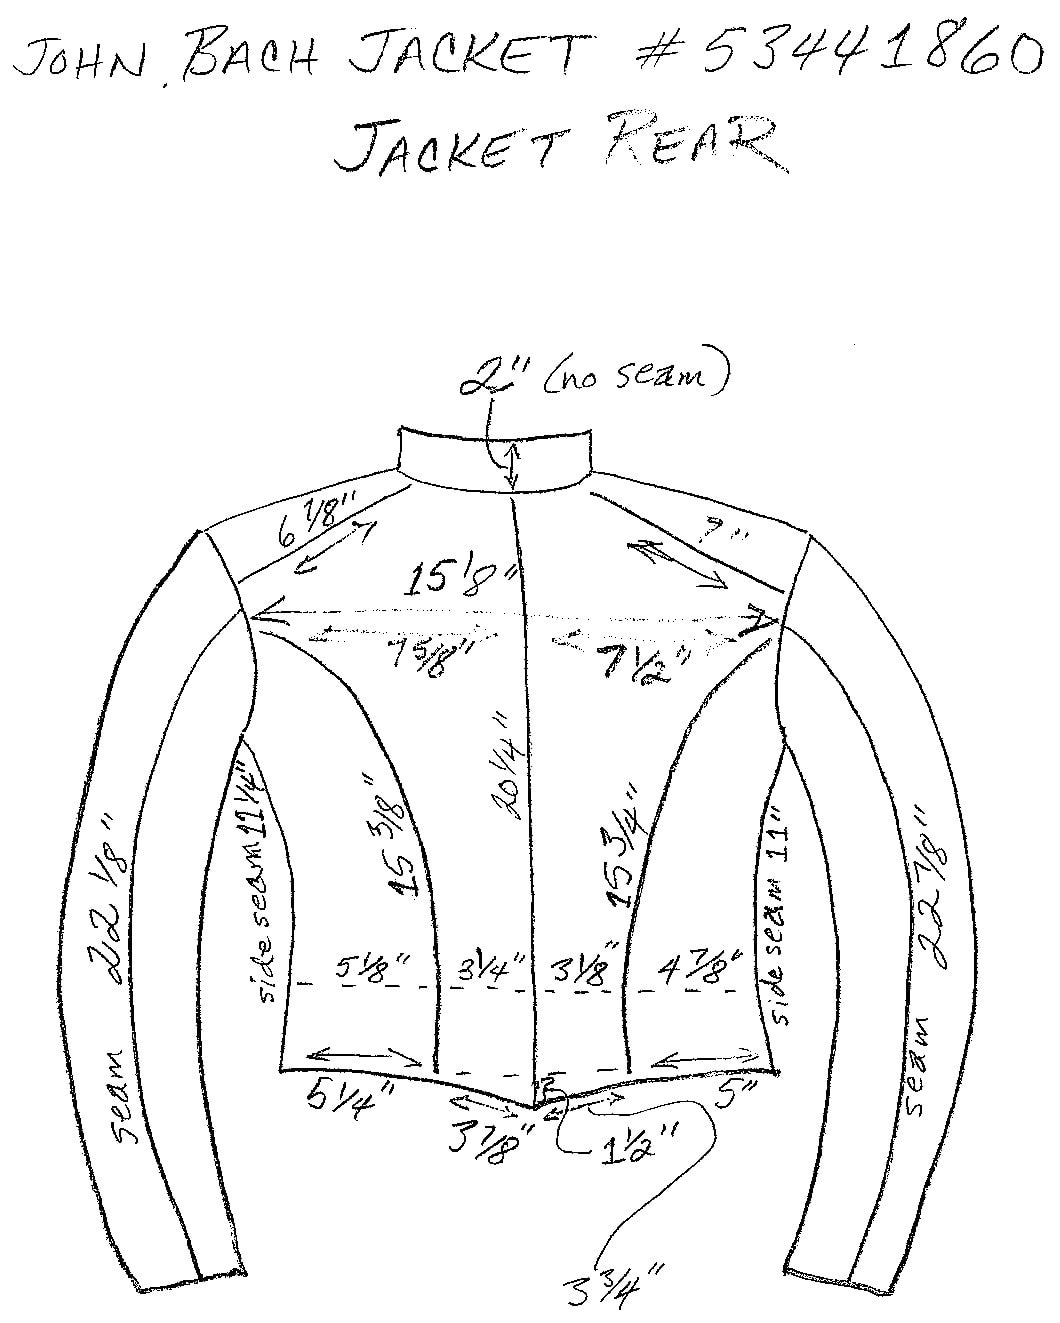 JOHN. BACH JACKET #53441860
JACKET REAR
2" (no seam)
6 1/8"
7"
15 1/8"
7 5/8"
7 1/2"
20 1/4"
15 3/8"
15 3/4"
side seam 11 1/4"
side seam 11"
seam 22 1/8"
seam 22 7/8"
5 1/8"
3 1/4"
3 1/8"
4 7/8"
5 1/4"
5"
3 7/8"
1 1/2"
3 3/4"